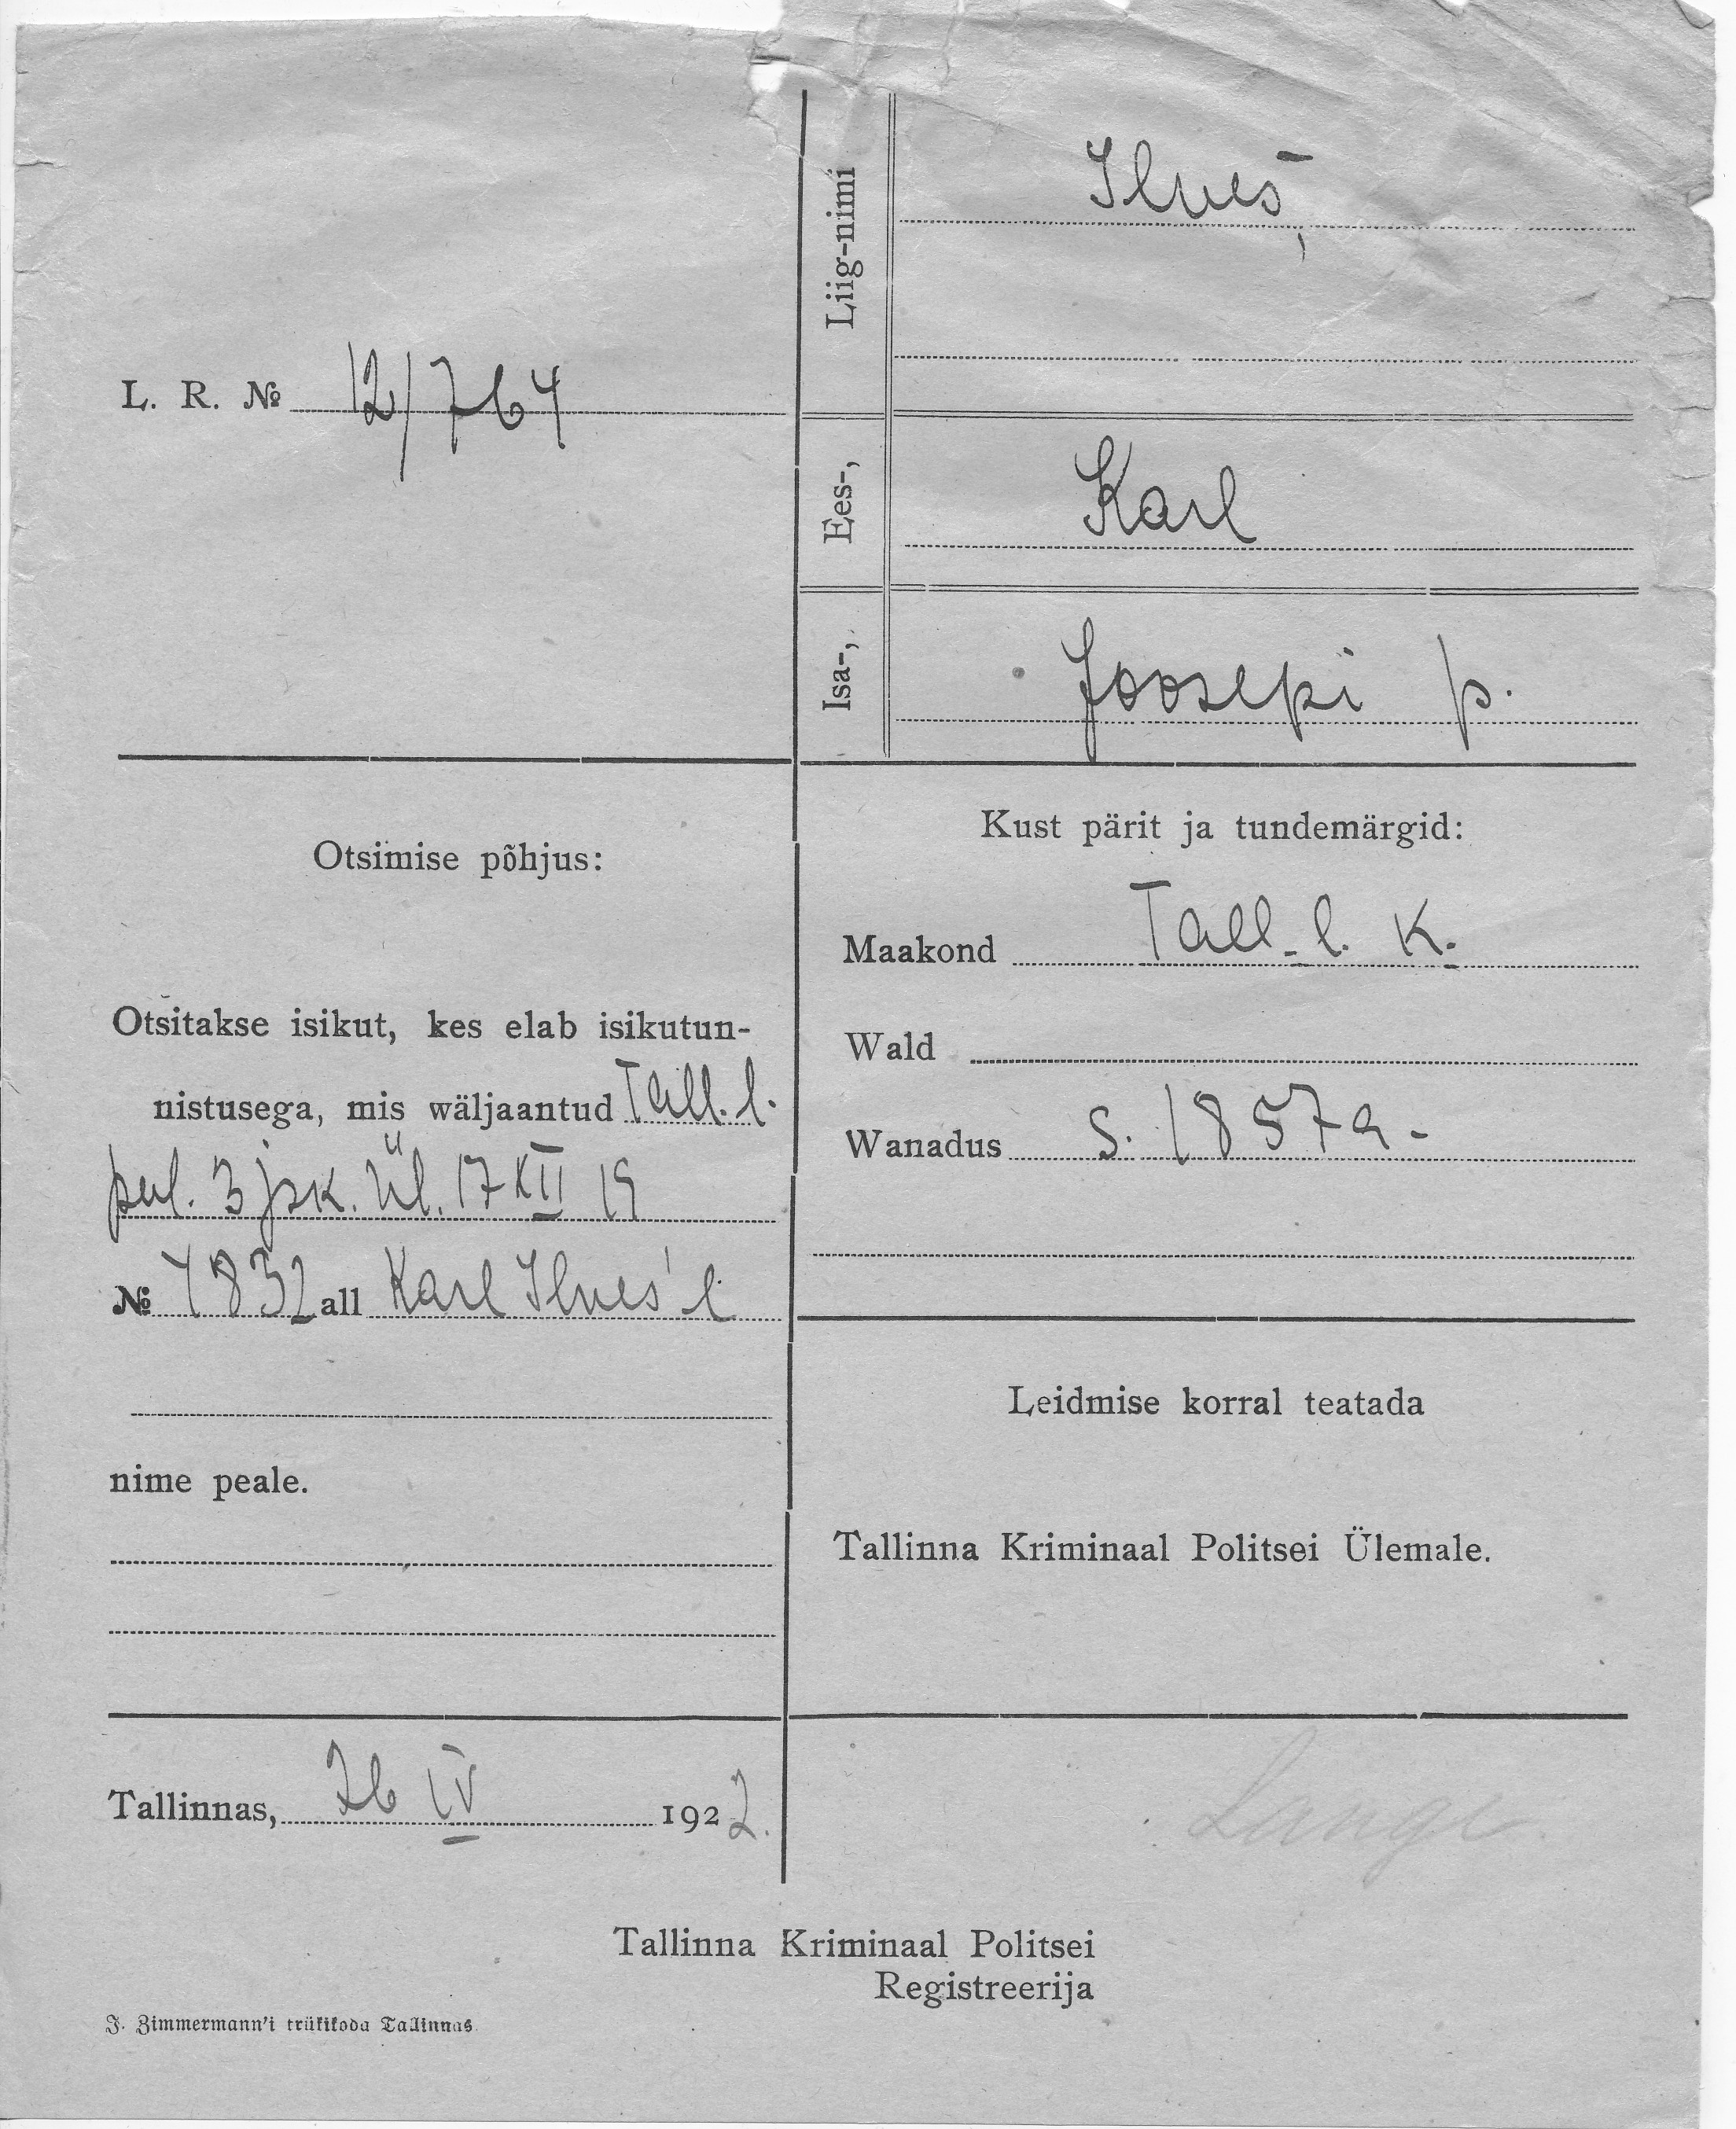 L. R. № 12/764
Liig-nimi
Ilves
Ees-,
Karl
Isa-,
Joosepi p.
Otsimise põhjus:
Otsitakse isikut, kes elab isikutun-
nistusega, mis wäljaantud Tall. l.
pol. 3 jsk. ül. 17 XII 19
№ 4832 all Karl Ilves'e
nime peale.
Kust pärit ja tundemärgid:
Maakond Tall. l. K.
Wald
Wanadus s. 1857 a.
Leidmise korral teatada
Tallinna Kriminaal Politsei Ülemale.
Tallinnas, 26 IV 1922.
Lange
Tallinna Kriminaal Politsei
Registreerija
J. Zimmermann'i trükikoda Tallinnas